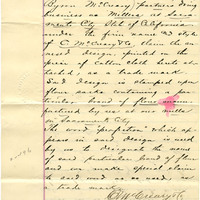 Byron McCreary, partners doing
business as Millers at Sacra-
mento City, State of California
under the firm name and style
of C. McCreary & Co., claim the an-
nexed design, printed on the
piece of cotton cloth hereto at-
tached, as a trade mark.
Said design is stamped upon
flour sacks containing a par-
ticular brand of flour manu-
factured by us at our mills
in Sacramento City.
The word perfection which ap-
pears in said design is used
by us to designate the name
of said particular brand of flour
and we make special claim
to said word as so used, as
a trade mark.
C. McCreary & Co